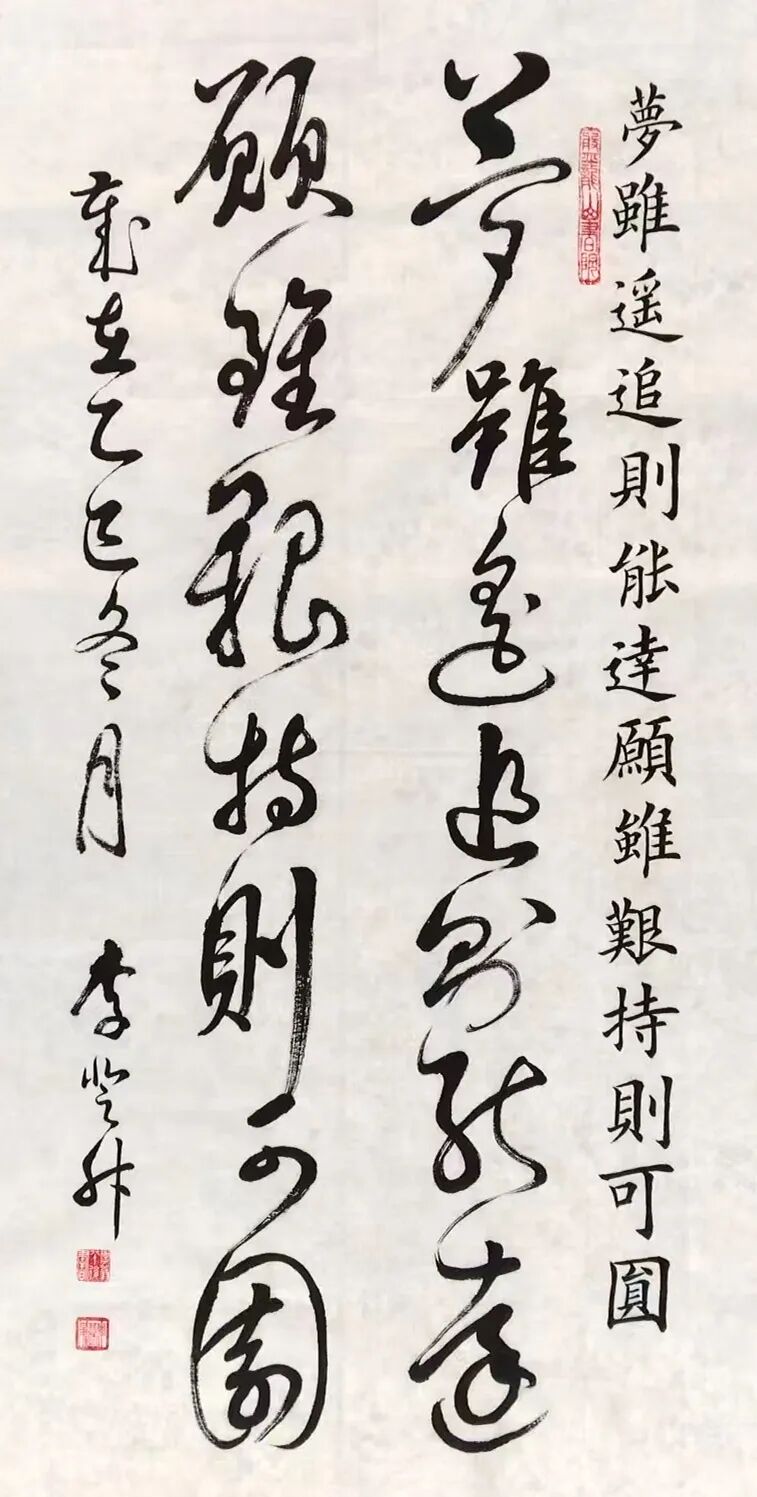 夢雖遥追則能達願雖艱持則可圓
夢雖遥追則能達
願雖艱持則可圓
歲在乙巳冬月 李登舟